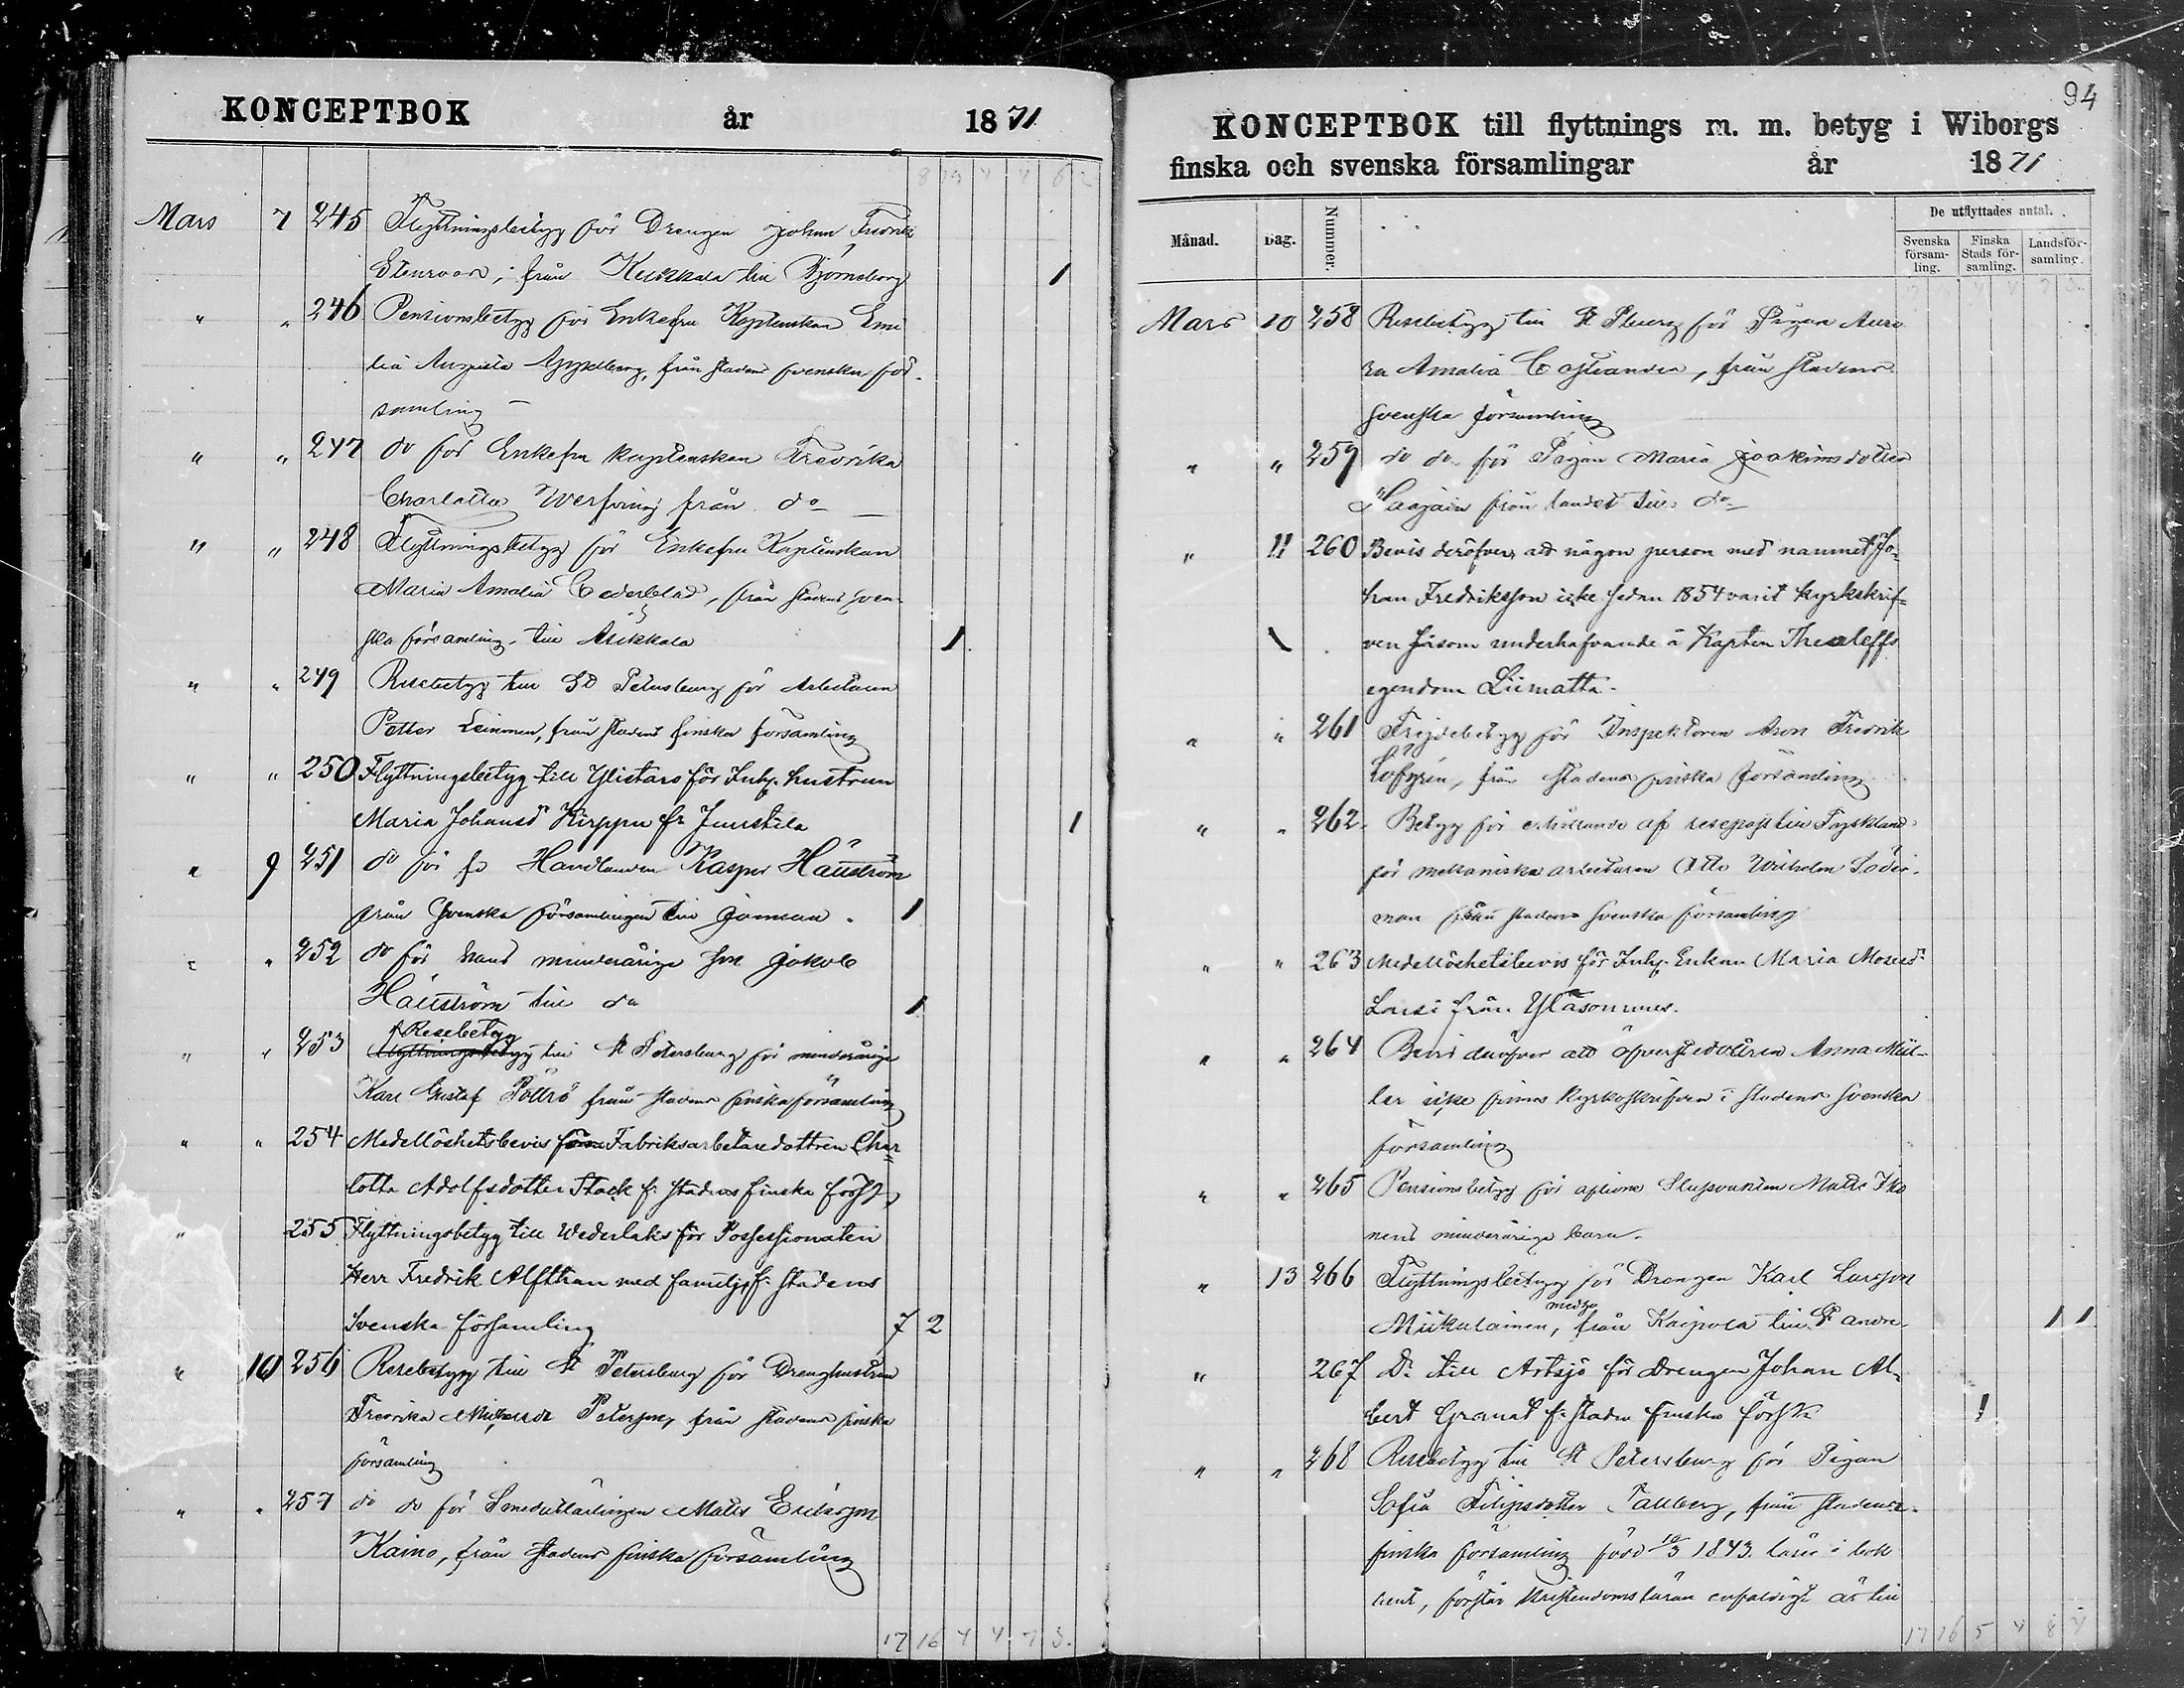 KONCEPTBOK år 1871
8 19 4 4 6 2
Mars 7 245 Flyttningsbetyg för Drengen Johan Fredrik
Stenroos, från Kuikkala till Björneborg 1
" " 246 Pensionsbetyg för Enkefru Kaptenskan Emi
lia Augusta Gyldberg, från stadens svenska för-
samling
" " 247 do för Enkefru Kaptenskan Fredrika
Charlotta Werfving från do
" " 248 Flyttningsbetyg för Enkefru Kaptenskan
Maria Amalia Cederblad, från stadens sven-
ska församling till Asikkala 1
" " 249 Resebetyg till St Petersburg för Arbetaren
Petter Leinonen, från stadens finska församling
" " 250 Flyttningsbetyg till Ylistaro för Inh. hustrun
Maria Johansd Kirppu fr Juustila 1
" 9 251 do för fd Handlanden Kasper Hällström
från Svenska församlingen till Jomau. 1
" " 252 do för hans minderårige son Jakob
Hällström till do 1
" " 253 Resebetyg
Flyttningsbetyg till St Petersburg för minderårige
Karl Gustaf Pöllrö från stadens finska församling
" " 254 Medellöshetsbevis för Fabriksarbetaredottren Char=
lotta Adolfsdotter Stack fr. stadens finska försg
" 255 Flyttningsbetyg till Wederlaks för Possessionaten
Herr Fredrik Alfthan med familj fr. stadens
Svenska församling 7 2
" 10 256 Resebetyg till St Petersburg för Drenghustrun
Fredrika Petersson, från stadens finska
församling
" " 257 do do för Smedlärlingen Matts Eriksson
Kaino, från stadens finska församling
17 16 4 4 7 3.
94
KONCEPTBOK till flyttnings m. m. betyg i Wiborgs
finska och svenska församlingar år 1871
Månad. Dag. Nummer. De utflyttades antal.
Svenska försam-ling. Finska Stads för-samling. Landsför-samling.
Mars 10 258 Resebetyg till St Pburg för Pigan Auro
ra Amalia Castiander, från stadens
Svenska församling
" " 259 do do för Pigan Maria Joakimsdotter
Haajain från landet till do
" 11 260 Bevis deröfver, att någon person med namnet Jo-
han Fredriksson icke sedan 1854 varit kyrkskrif=
ven såsom underhafvande å Kapten Thesleffs
egendom Liimatta.
" " 261 Frejdebetyg för Inspektoren Aron Fredrik
Löfgrén, från stadens finska församling
" " 262. Betyg för erhållande af resepass till Tyskland
för mekaniska arbetaren Otto Wilhelm Söder-
man från stadens svenska församling
" " 263 Medellöshetsbevis för Inh. Enkan Maria Mosesd:
Lansi från Yläsommes.
" " 264 Bevis deröfver att öfverstedottren Anna Mül-
ler icke finnes kyrkoskrifven i stadens svenska
församling
" " 265 Pensionsbetyg för aflidne Slupsvakten Matts Iko
nens minderåriga barn.
" 13 266 Flyttningsbetyg för Drengen Karl Larsson
Miikulainen, med hu från Kaipola till St Andre. 1 1
" 267 Do till Artsjö för Drengen Johan Al-
bert Granat fr. staden finska förs:ln 1
" " 268 Resebetyg till St Petersburg för Pigan
Sofia Filipsdotter Tallberg, från stadens
finska församling född 10/3 1843. läser i bok
rent, förstår kristendomsläran enfaldigt är till
17 16 5 4 8 4